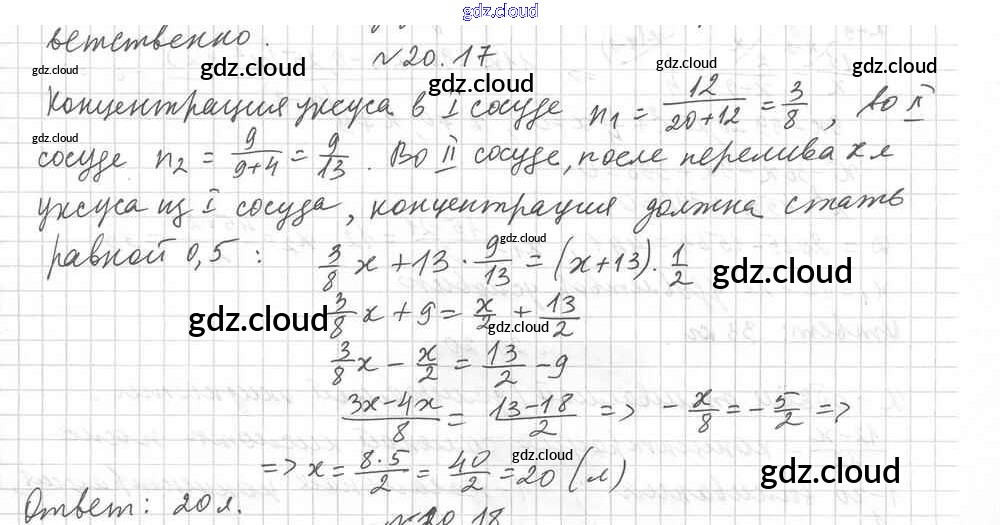 gdz.cloud
ветственно.
№20.17
gdz.cloud gdz.cloud gdz.cloud gdz.cloud
Концентрация уксуса в I сосуде n₁ = 12/(20+12) = 3/8, во II
gdz.cloud
сосуде n₂ = 9/(9+4) = 9/13. Во II сосуде, после перелива x л
уксуса из I сосуда, концентрация должна стать
равной 0,5 : 3/8 x + 13 · 9/13 = (x+13) · 1/2
gdz.cloud gdz.cloud
3/8 x + 9 = x/2 + 13/2
gdz.cloud gdz.cloud
3/8 x − x/2 = 13/2 − 9
(3x−4x)/8 = (13−18)/2 => −x/8 = −5/2 =>
=> x = 8·5/2 = 40/2 = 20 (л)
gdz.cloud gdz.cloud
Ответ: 20 л.
№20.18